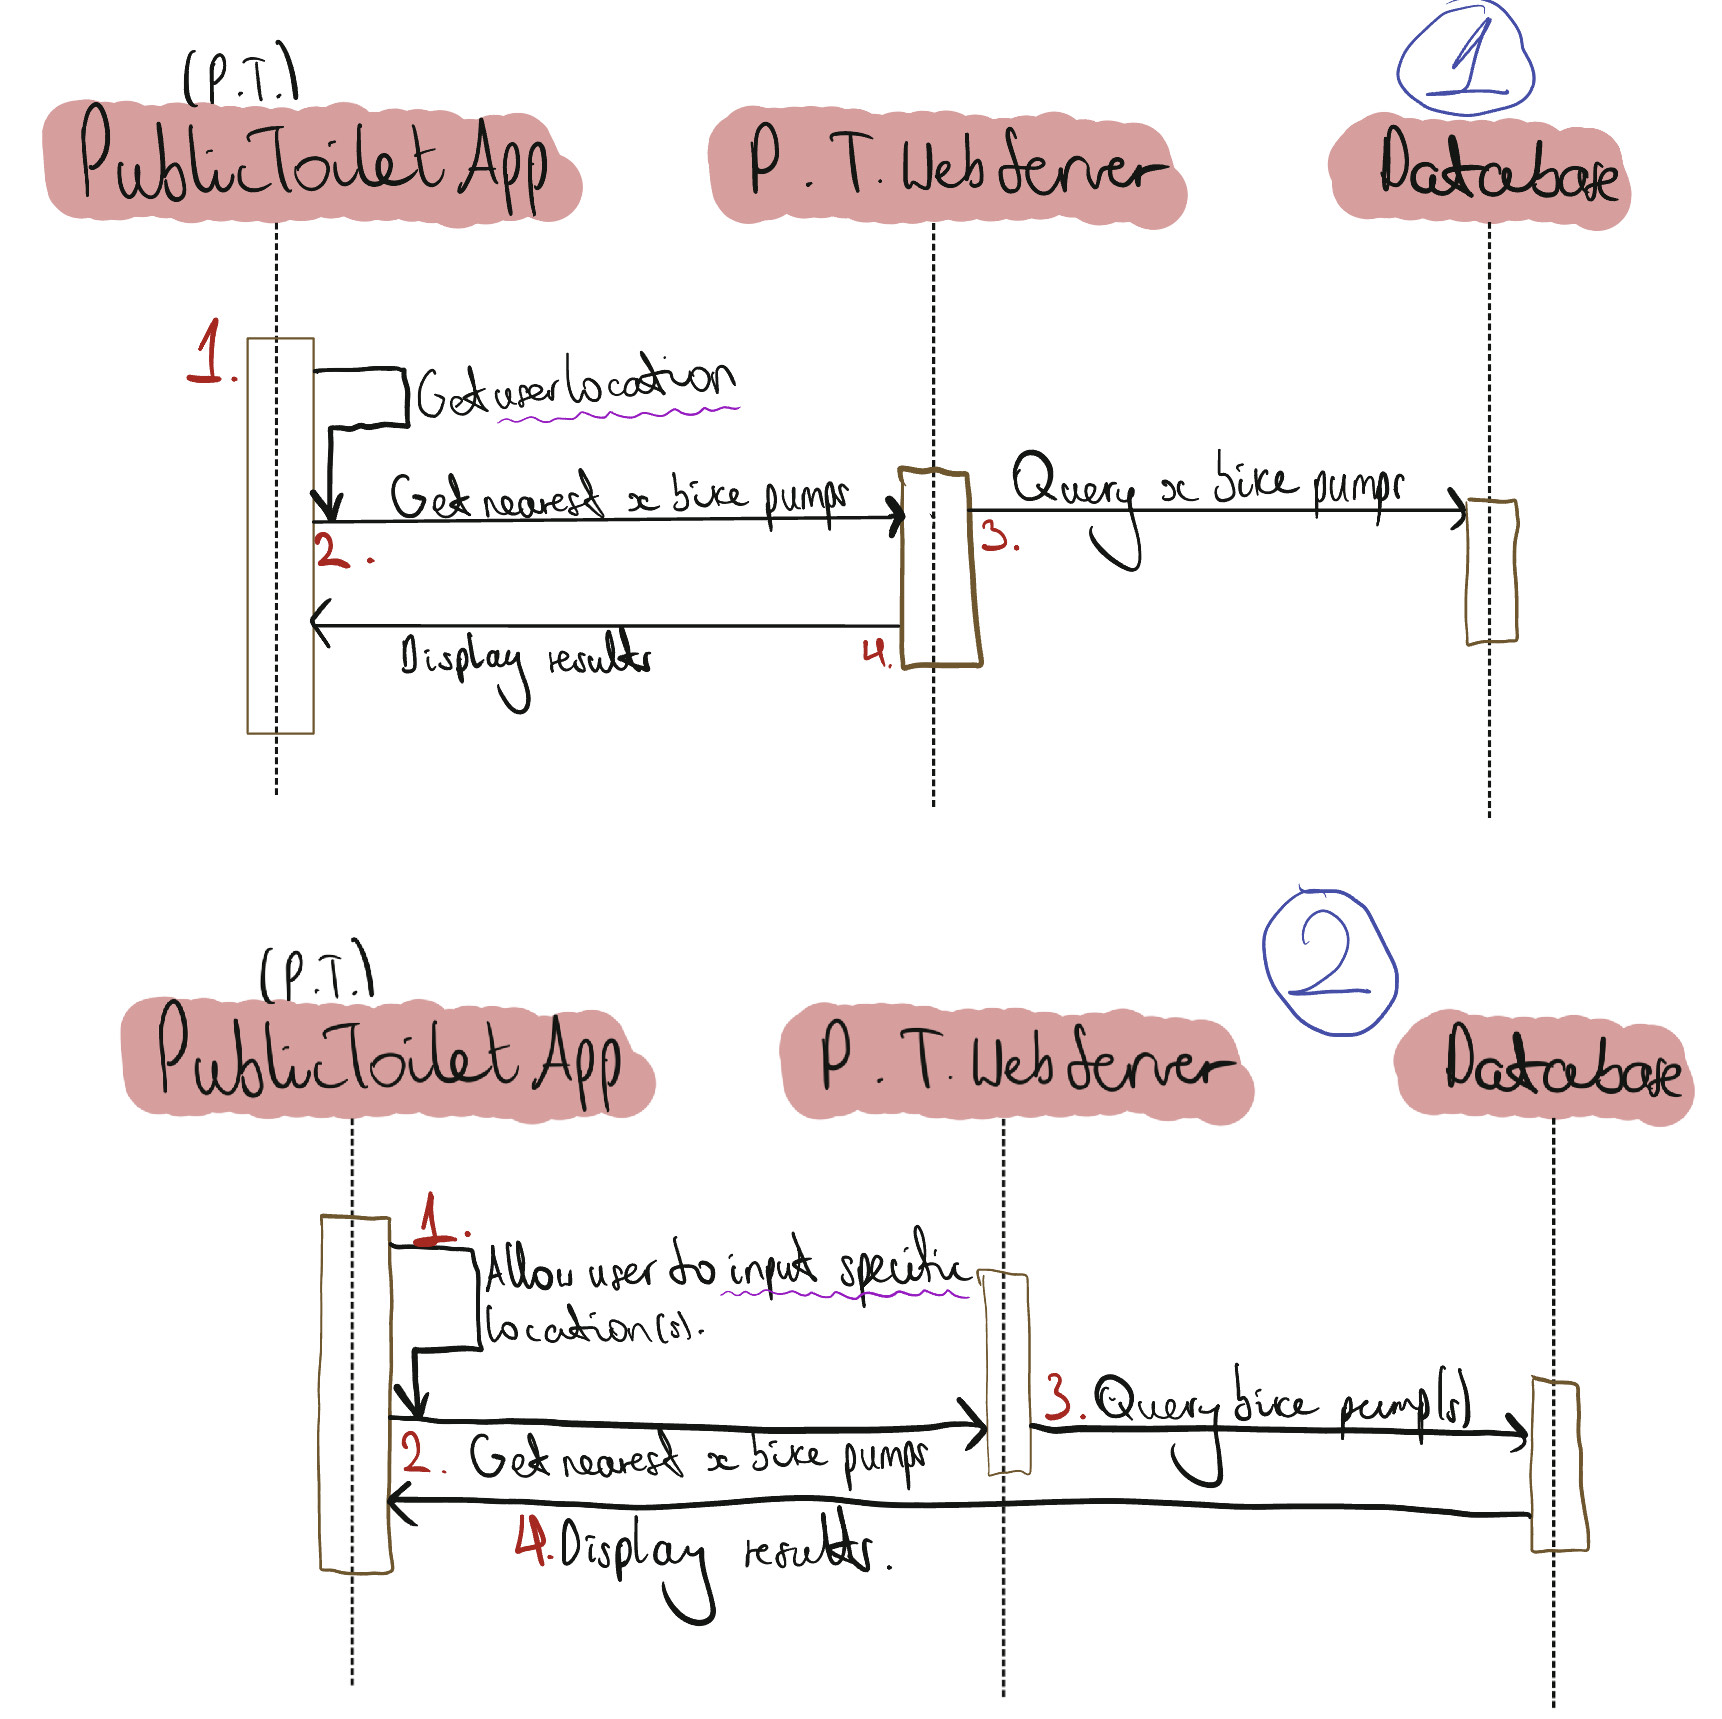 (P.T.)
1
PublicToilet App
P.T. WebServer
Database
1.
Get user location
Get nearest x bike pumps
Query x bike pumps
2.
3.
Display results
4.
(P.T.)
2
PublicToilet App
P.T. WebServer
Database
1.
Allow user to input specific
location(s).
3. Query bike pump(s)
2. Get nearest x bike pumps
4. Display results.